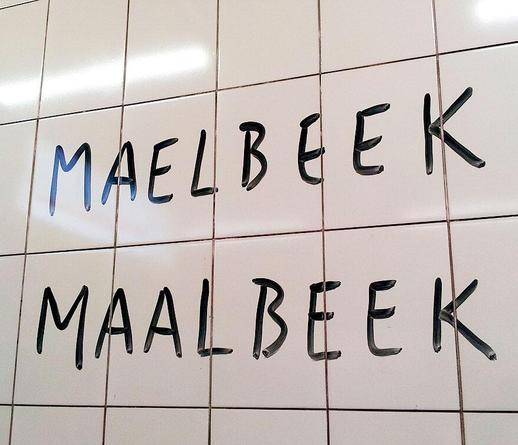 MAELBEEK
MAALBEEK